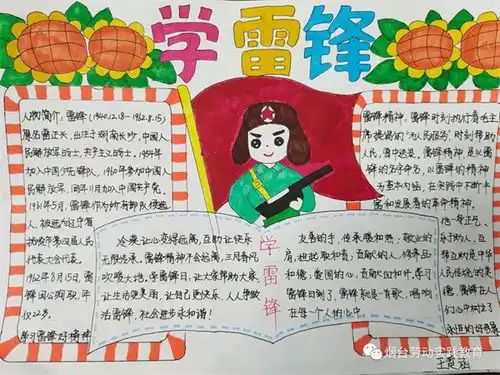 学雷锋
人物简介：雷锋（1940.12.18—1962.8.15）
原名雷正兴，出生于湖南长沙，中国人
民解放军战士，共产主义战士。1954年
加入中国少年先锋队，1960年参加中国人
民解放军，同年11月加入中国共产党。
1961年5月，雷锋作为所在部队候选
人，被选为辽宁省
抚顺市第四届人民
代表大会代表。
1962年8月15日，雷
锋因公殉职，年
仅22岁。
学习雷锋好榜样
冷漠让心变得遥远，互助让快乐
无限传承，雷锋精神不会远离，三月春风
吹暖大地，学雷锋日，让大家帮助大家，
让生活更美丽，让自己更快乐，人人争做
活雷锋，社会进步永和谐！
学雷锋
友善的手，传承暖和热；敬业的
肩，担起软和青；贡献的人，修养品
和德；爱国的心，贡献心血和汗，学习
雷锋日到了，雷锋就是一首歌，唱响
在每一个人的心中
雷锋精神，雷锋时刻执行着毛主
席提倡的“为人民服务”时刻帮助
人民，雷中送炭。雷锋精神，是以雷
锋的名字命名，以雷锋的精神
为基本内涵，在实践中不断丰
富和发展着的革命精神，
他一身正气，
乐于助人，互
帮互助是中华
民族传统的美
德，雷锋在人
们心中树立了
永恒的好榜样
王楚涵
烟台劳动实践教育